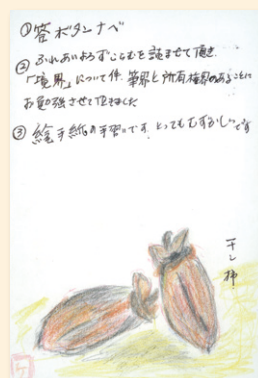 ①答ボタンナベ
②ふれあいよろずこらむを読ませて頂き
「境界」について件、筆界と所有権界のあることに
お勉強させて頂きました
③絵手紙の手習いです。とってもむずかしいです
干し柿